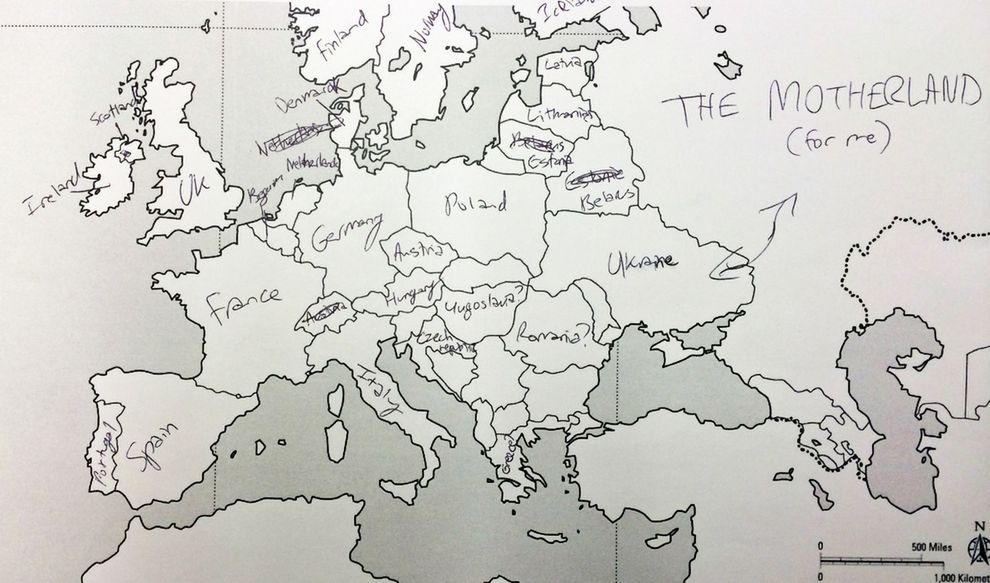 Finland
Norway
Latvia
THE MOTHERLAND
(for me)
Scotland
Denmark
Lithuania
Netherlands
Estonia
Belarus
Ireland
UK
Germany
Poland
Austria
Ukraine
France
Hungary
Yugoslavia?
Romania?
Czech
republic
Italy
Portugal
Spain
Greece?
N
0 500 Miles
0 1,000 Kilomet